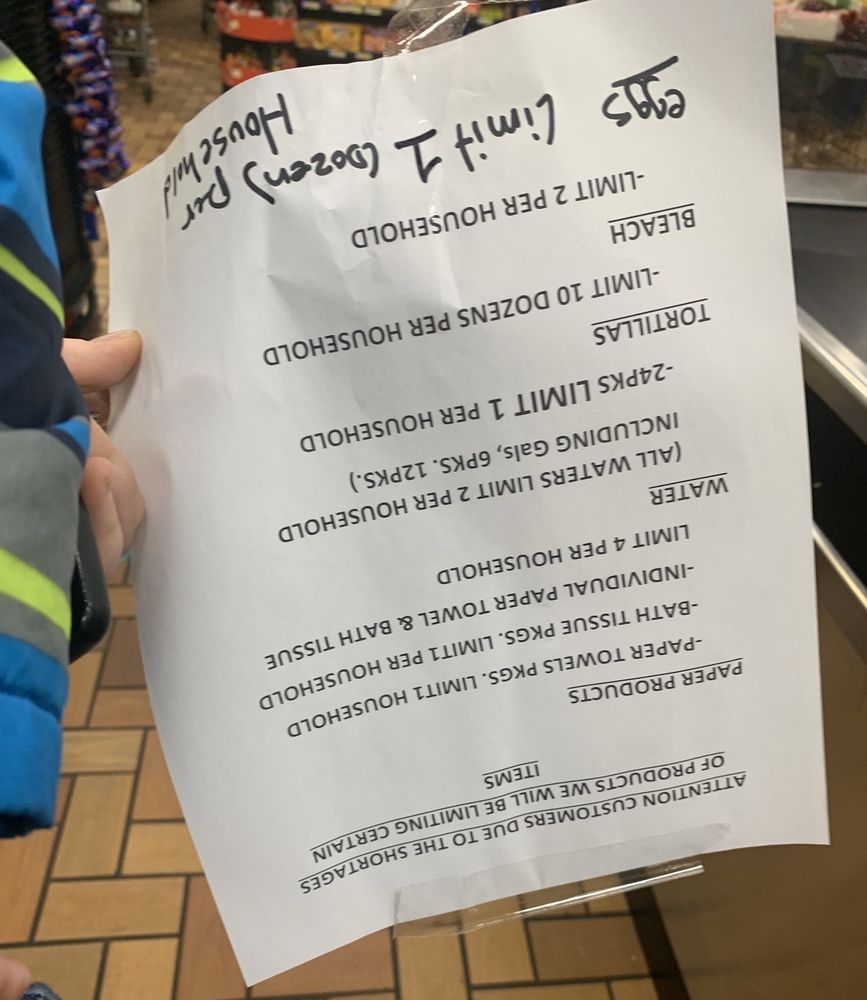 ATTENTION CUSTOMERS DUE TO THE SHORTAGES
OF PRODUCTS WE WILL BE LIMITING CERTAIN
ITEMS
PAPER PRODUCTS
-PAPER TOWELS PKGS. LIMIT1 HOUSEHOLD
-BATH TISSUE PKGS. LIMIT1 PER HOUSEHOLD
-INDIVIDUAL PAPER TOWEL & BATH TISSUE
LIMIT 4 PER HOUSEHOLD
WATER
(ALL WATERS LIMIT 2 PER HOUSEHOLD
INCLUDING Gals, 6PKS. 12PKS.)
-24PKS LIMIT 1 PER HOUSEHOLD
TORTILLAS
-LIMIT 10 DOZENS PER HOUSEHOLD
BLEACH
-LIMIT 2 PER HOUSEHOLD
eggs Limit 1 (Dozen) per
Household